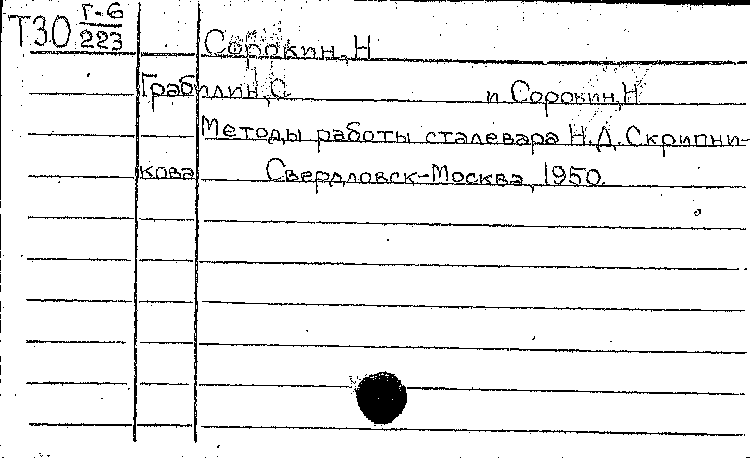 Т30 Г-6
223
Сорокин, Н
Грабилин, С. и Сорокин, Н
Методы работы сталевара Н.Д. Скрипни-
кова Свердловск-Москва, 1950.